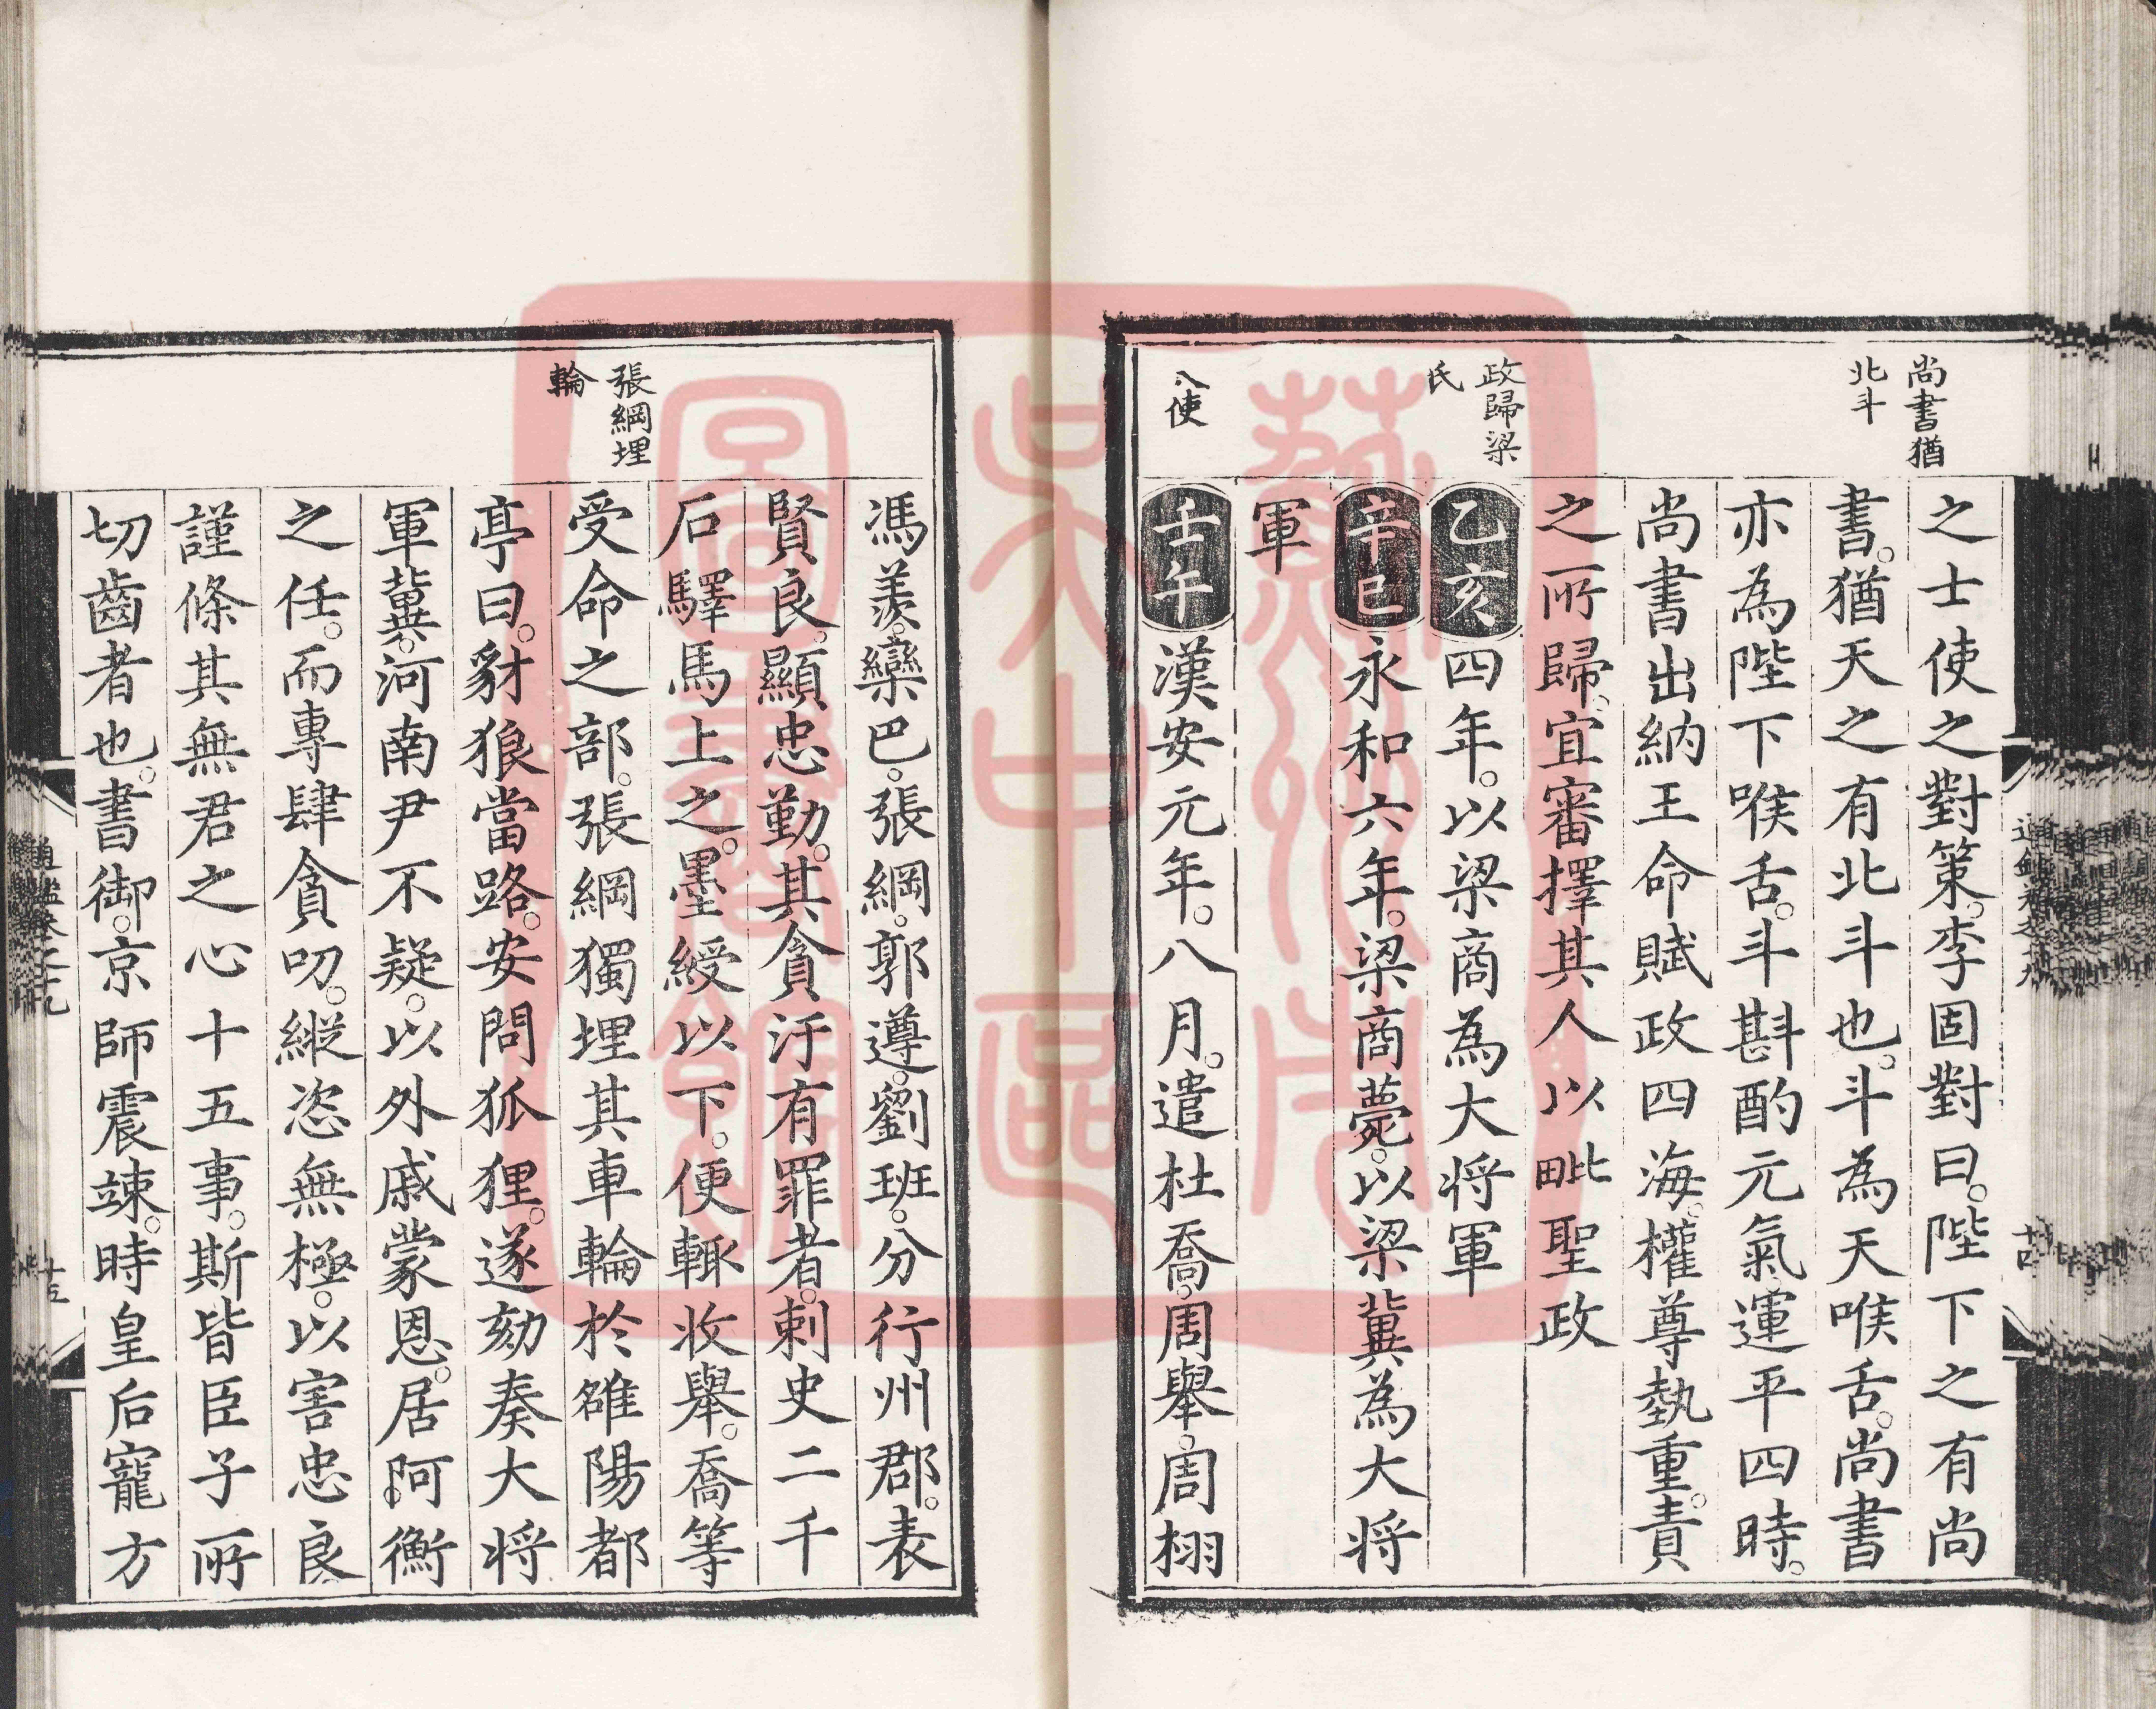 尚書猶
北斗
政歸梁
氏
八使
之士使之對策。李固對曰。陛下之有尚
書。猶天之有北斗也。斗為天喉舌。尚書
亦為陛下喉舌。斗斟酌元氣。運平四時。
尚書出納王命賦政四海。權尊埶重。責
之所歸。宜審擇其人以毗聖政
乙亥四年。以梁商為大將軍
辛巳永和六年。梁商薨。以梁冀為大將
軍
壬午漢安元年。八月。遣杜喬。周舉。周栩
張綱埋
輪
馮羨。欒巴。張綱。郭遵。劉班。分行州郡。表
賢良。顯忠勤。其貪汙有罪者。刺史二千
石驛馬上之。墨綬以下。便輒收舉。喬等
受命之部。張綱獨埋其車輪於雒陽都
亭曰。豺狼當路。安問狐狸。遂劾奏大將
軍冀。河南尹不疑。以外戚蒙恩。居阿衡
之任。而專肆貪叨。縱恣無極。以害忠良
謹條其無君之心十五事。斯皆臣子所
切齒者也。書御。京師震竦。時皇后寵方
十五
蘇州市
吳中區
圖書館